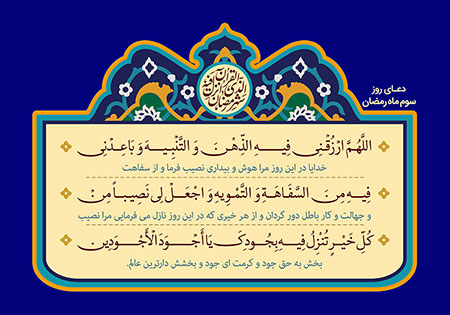 شهر رمضان الذی انزل فیه القرآن
دعـای روز
سوم ماه رمضان
اَللّهُمَّ ارْزُقْنی فیـهِ الذِّهْنَ وَ التَّنْبیـهَ وَ باعِدْنی
خدایا در این روز مرا هوش و بیداری نصیب فرما و از سفاهت
فیهِ مِنَ السَّفاهَةِ وَ التَّمْویهِ وَ اجْعَلْ لی نَصیباً مِنْ
و جهالت و کار باطل دور گردان و از هر خیری که در این روز نازل می فرمایی مرا نصیب
کُلِّ خَیْرٍ تُنْزِلُ فیهِ بِجُودِکَ یا اَجْوَدَ الْأَجْوَدینَ
بخش به حق جود و کرمت ای جود و بخشش دارترین عالم.